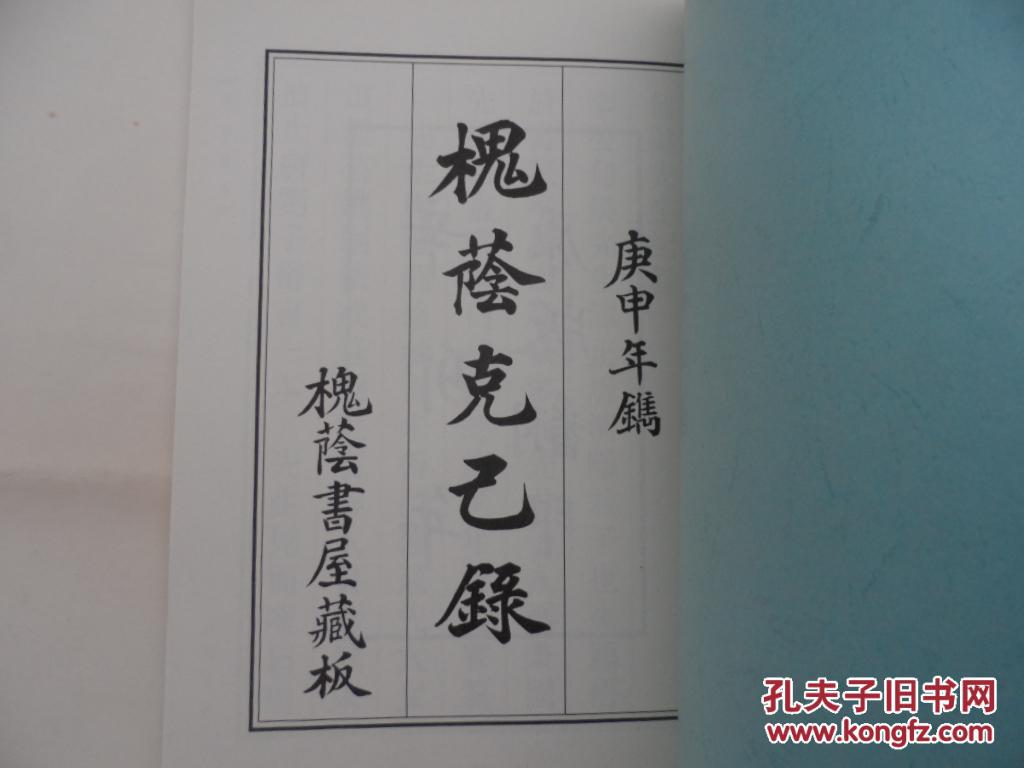 庚申年鐫
槐蔭克己錄
槐蔭書屋藏板
孔夫子旧书网
www.kongfz.com